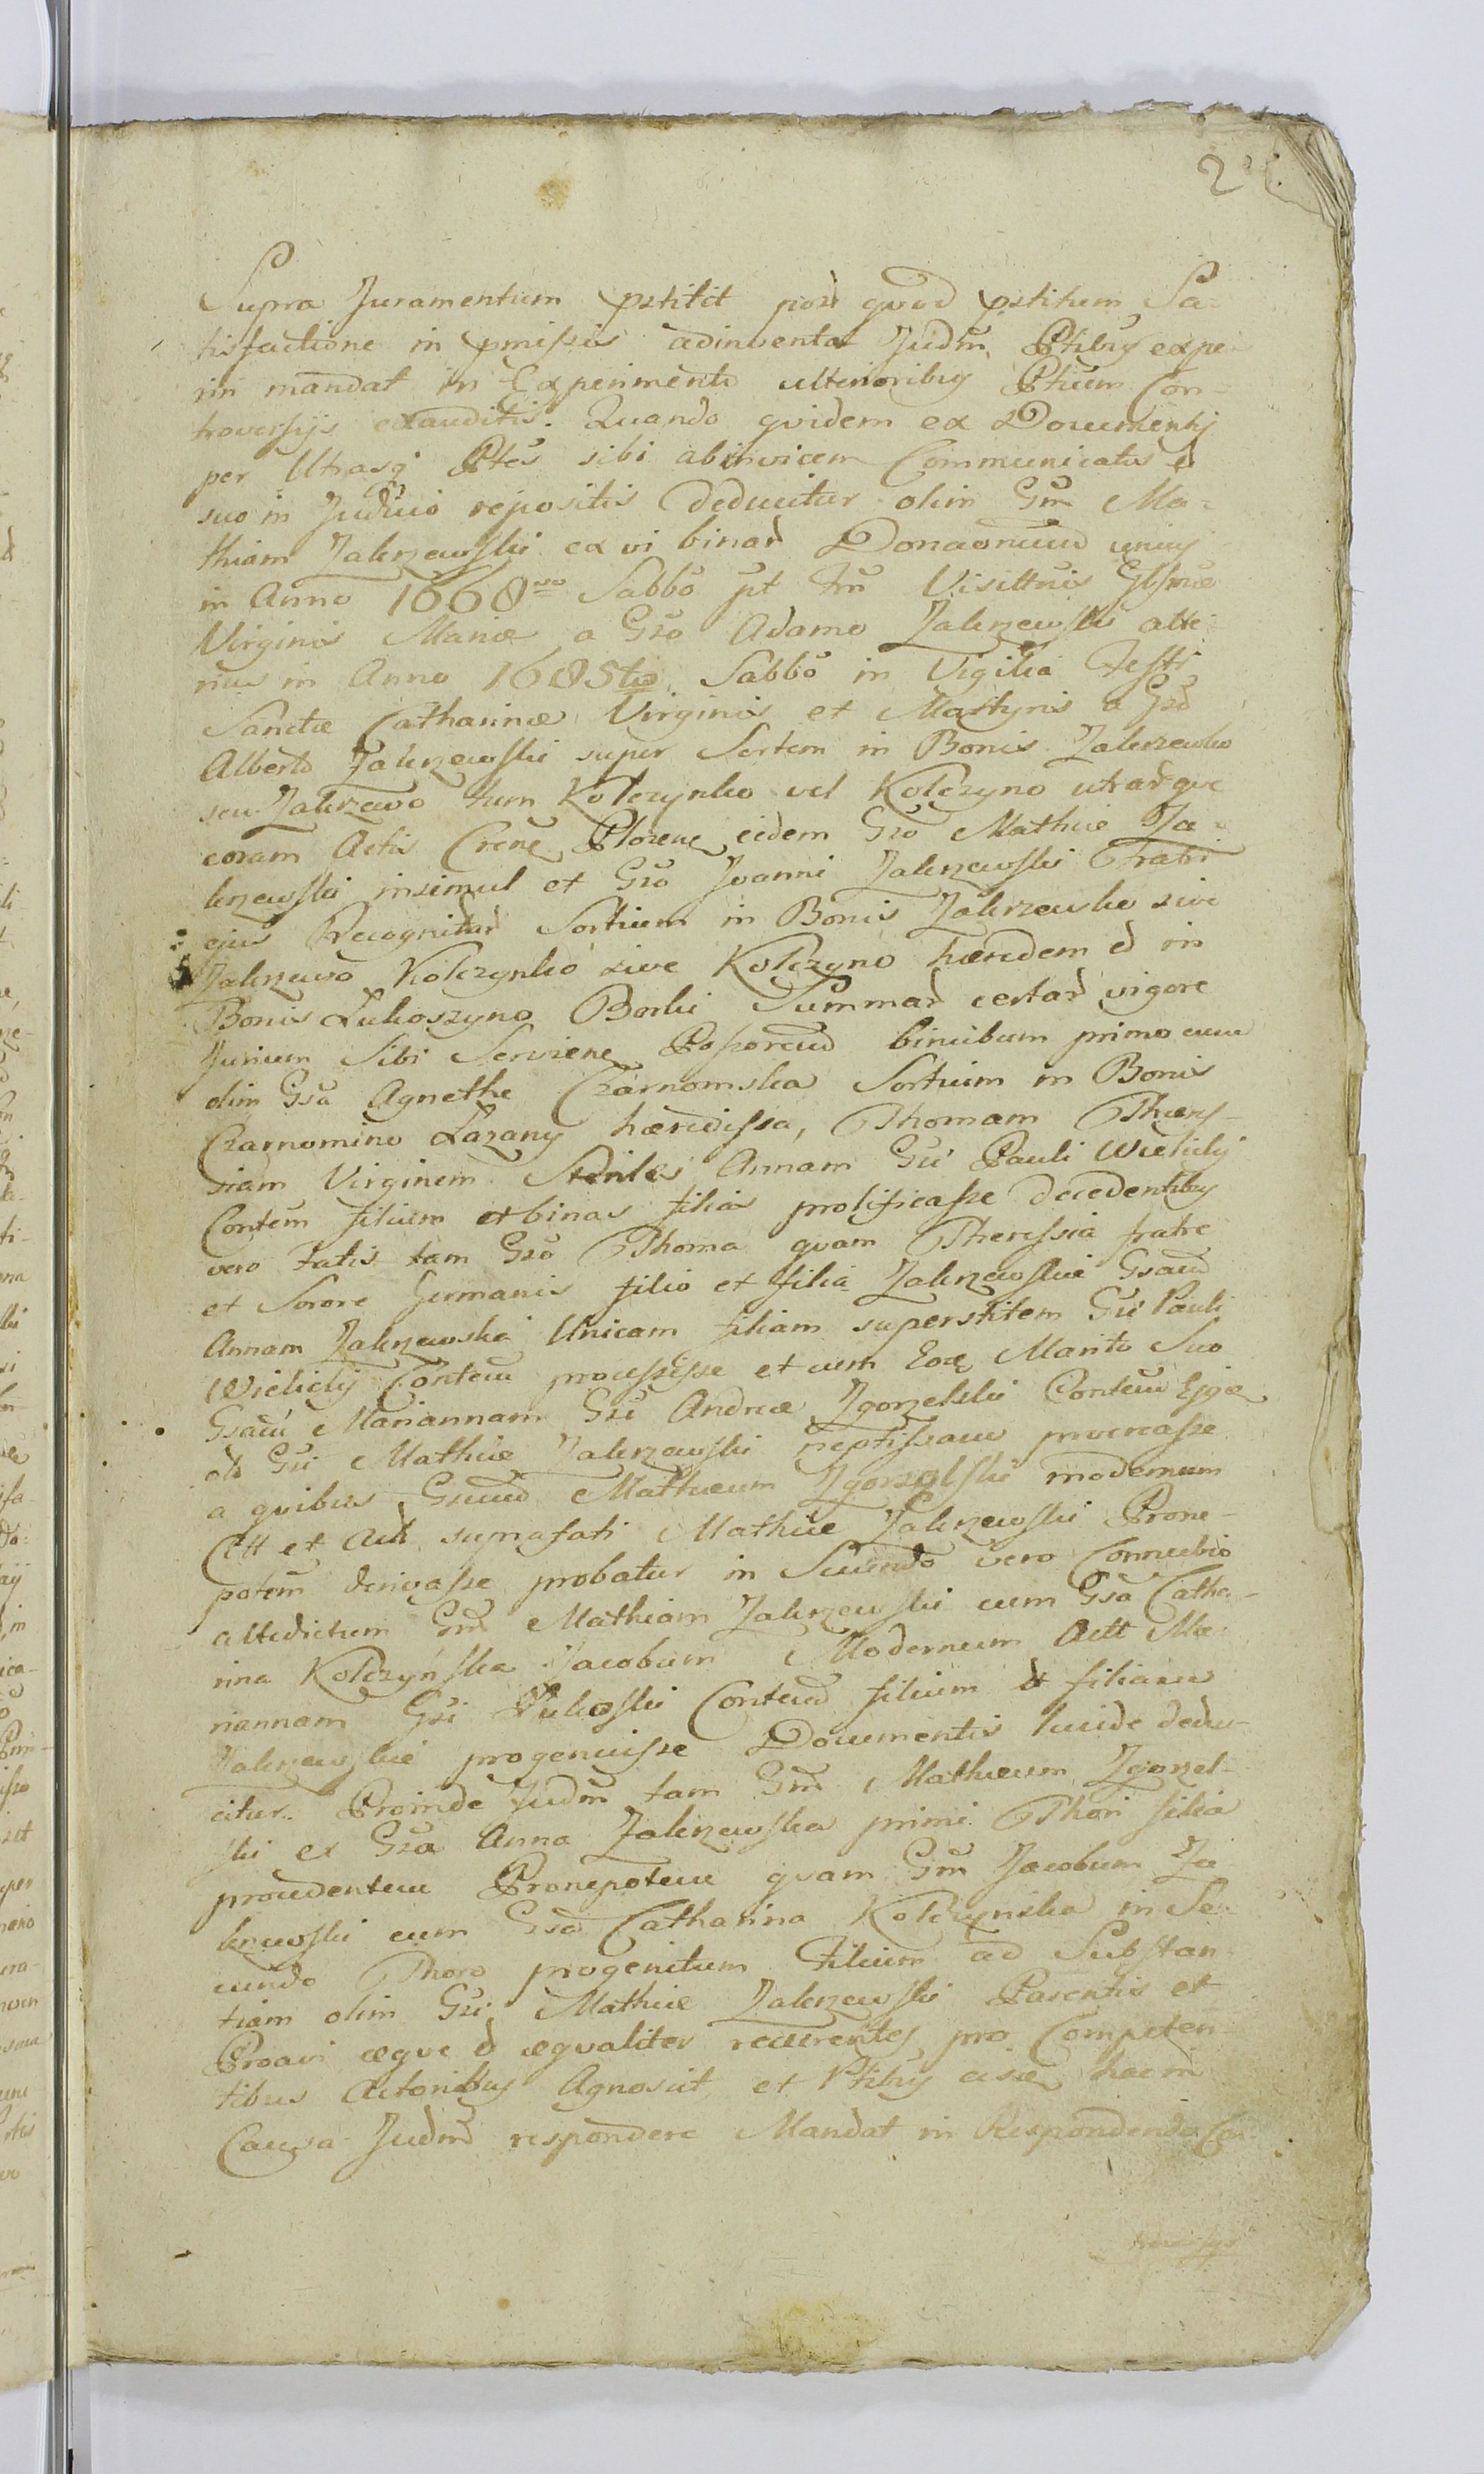 2
Supra Juramentum pstitit post quod pstitum Sa-
tisfactione in pmissis adinventa Judm Ptibus expe-
riri mandat in Experimento ulterioribus Ptium Con-
troversijs exauditis. Quando quidem ex Documentis
per Utrasq Ptes sibi abinvicem Communicatis et
suo in Juditio repositis Deducitur olim Gm Ma-
thiam Zakrzewski ex vi binar Donaonum unius
in Anno 1668vo Sabbo pt Fm Visittnis Glsmæ
Virginis Mariæ a Gso Adamo Zakrzewski alte-
rius in Anno 1685to Sabbo in Vigilia Festi
Sanctæ Catharinæ Virginis et Martyris a Gso
Alberto Zakrzewski super Sortem in Bonis Zakrzewko
seu Zakrzewo tum Kolczynko vel Kolczyno utrarque
coram Actis Crens Plocens eidem Gso Mathiæ Za-
krzewski insimul et Gso Joanni Zakrzewski Fratri
ejus Recognitar Sortium in Bonis Zakrzewko sive
Zakrzewo Kolczynko sive Kolczyno hæredem et in
Bonis Lukoszyno Borki Summar certar vigore
Jurium Sibi Serviens Possorem binubum primo cum
olim Gsa Agnethe Czarnomska Sortium in Bonis
Czarnomino Łazany hæredissa, Thomam Theres-
siam Virginem Steriles Annam Gsi Pauli Wielicki
Contem filium et binas filias prolificasse decedentibus
vero Fatis tam Gso Thoma quam Theressia fratre
et Sorore Germanis filio et filia Zakrzewskie Gsam
Annam Zakrzewska Unicam filiam superstitem Gsi Pauli
Wielicki Contem processisse et cum Eoq Marito Suo
Gsam Mariannam Gsi Andreæ Zgorzelski Contem Ejq
et Gsi Mathiæ Zakrzewski neptissam procreasse
a quibus Gsum Mathæum Zgorzelski modernum
Ctt et Act suprafati Mathiæ Zakrzewski Prone-
potem derivasse probatur in Secundo vero Connubio
attedictum Gm Mathiam Zakrzewski cum Gsa Catha-
rina Kolczyńska Jacobum Modernum Actt Ma-
riannam Gsi Lukoski Contem filium et filiam
Zakrzewskie progenuisse Documentis lucide dedu-
citur. Proinde Judm tam Gm Mathæum Zgorzel-
ski ex Gsa Anna Zakrzewska primi Thori filia
procedentem Pronepotem quam Gm Jacobum Za
krzewski cum Gsa Catharina Kolczynska in Se-
cundo Thoro progenitum Filium ad Substan-
tiam olim Gsi Mathiæ Zakrzewski Parentis et
Proavi æque et æqualiter recurrentes pro Competen-
tibus Actoribus Agnoscit et Ptibus hacin
Causa Judm respondere Mandat in Respondendo Con-
troversijs